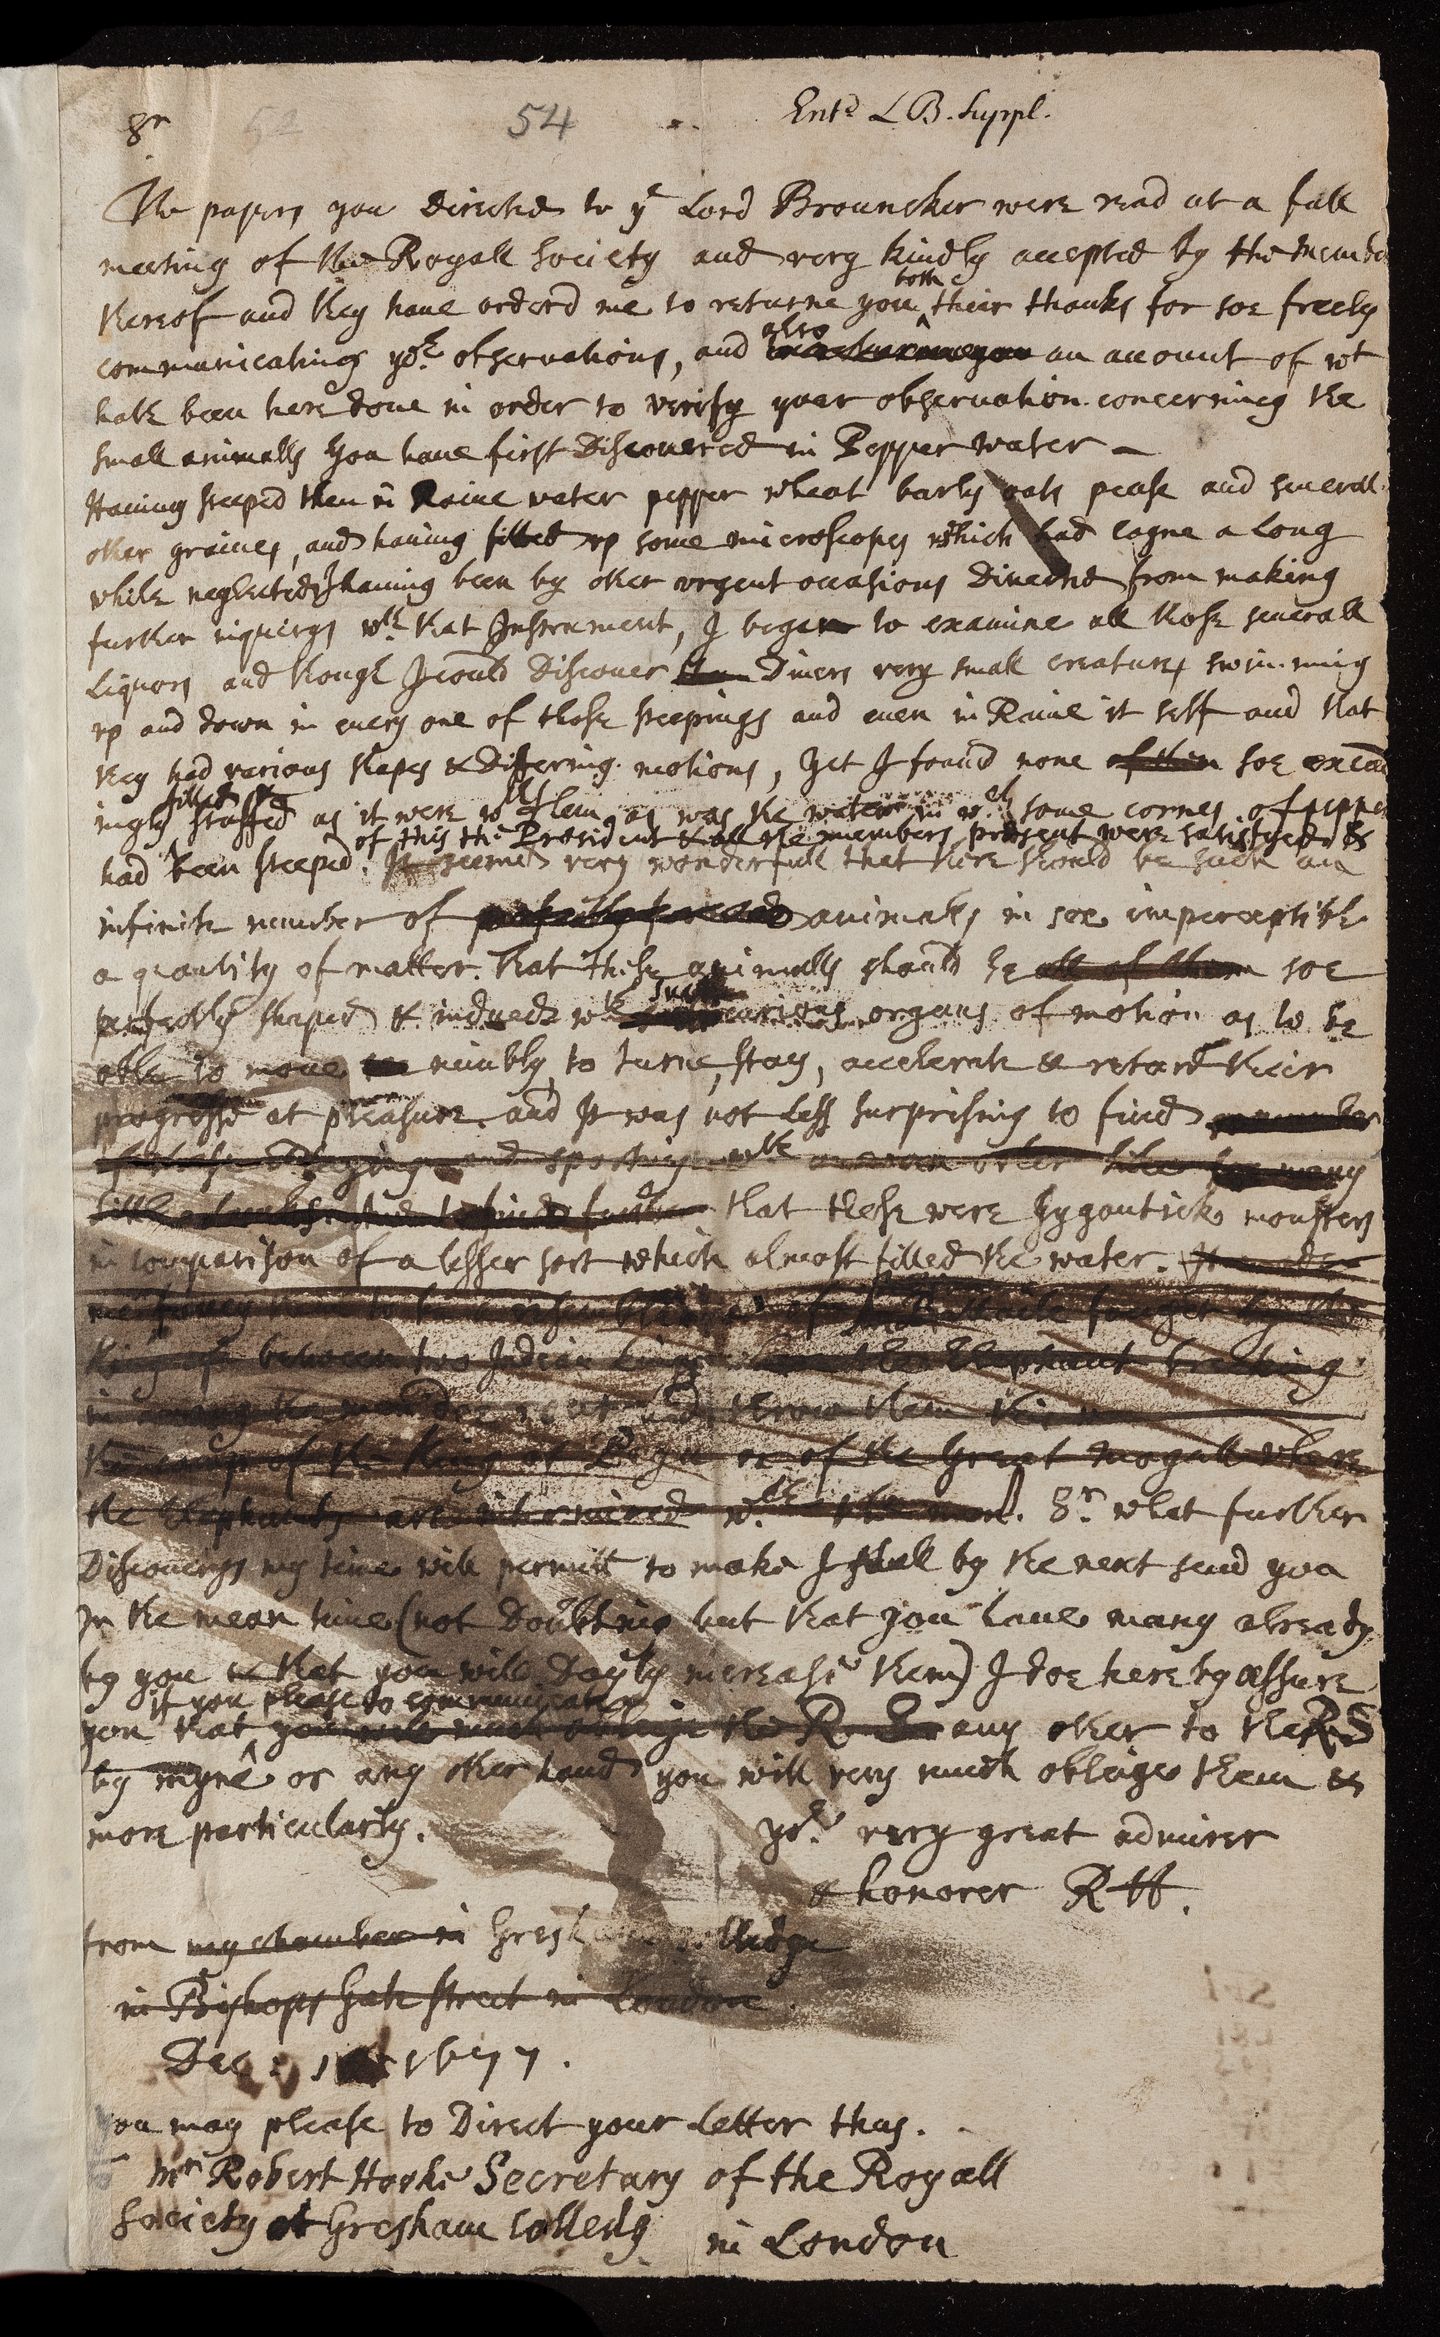 Sr
54
Entd L B. Suppl.
The papers you directed to ye Lord Brouncker were read at a full
meeting of the Royall Society and very kindly accepted by the
both
thereof and they have orderd me to returne you their thanks for soe freely
also
communicating yor observations, and an account of wt
hath been here done in order to verify your observation concerning the
small animalls you have first Discovered in Pepper water
Having steeped then in Raine water pepper wheat barly oats pease and severall
other graines, and having fitted up some microscopes which had layne a Long
while neglected having been by other urgent occasions Diverted from making
further inquirys wth that Instrument, I began to examine all those severall
Liquors and though I could Discover Divers very small creatures swimming
up and down in every one of those steepings and even in Raine it self and that
they had various shapes & differing motions, Yet I found none of them soe
filled
ingly stuffed as it were wth them as was the water in wch some cornes of pepper
of this the President & all the members present were satisfyed &
had been steeped. It seemed very wonderfull that there should be such an
infinite number of animals in soe imperceptible
a quantity of matter. that these animalls should be all of them soe
such
perfectly shaped & indued wth curious organs of motion as to be
able to move nimbly, to turne, stay, accelerate & retard their
progresse at pleasure. and It was not Less surprising to find
and sporting wth
that these were gygantick monsters
in comparison of a lesser sort which almost filled the water.
between two Indian Kings the Elephant breaking
in among the men throw them
the camp of the King of Pegu or of the Great mogull where
the Elephants are wth the men. Sr. what further
Discoverys my time will permitt to make I shall by the next send you
In the mean time (not Doubting but that you have many already
by you & that you will Dayly increase them) I doe hereby assure
if you please to communicate
you that you will much obleige the R any other to the RS
by myne or any other hand you will very much obleige them &
more particularly.
yor very great admirer
& honorer RH.
from my chamber in Gresham
in Bishops Gate street in London.
Dec: 1677.
you may please to Direct your Letter thus.
Mr Robert Hooke Secretary of the Royall
Society at Gresham Colledg
in London